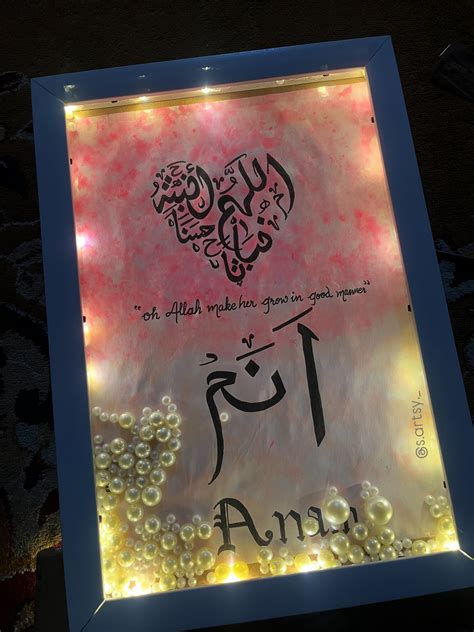 اللهم أنبتها
نباتا حسنا
"oh Allah make her grow in good manner"
اَنَمُ
Anam
@s.artsy__